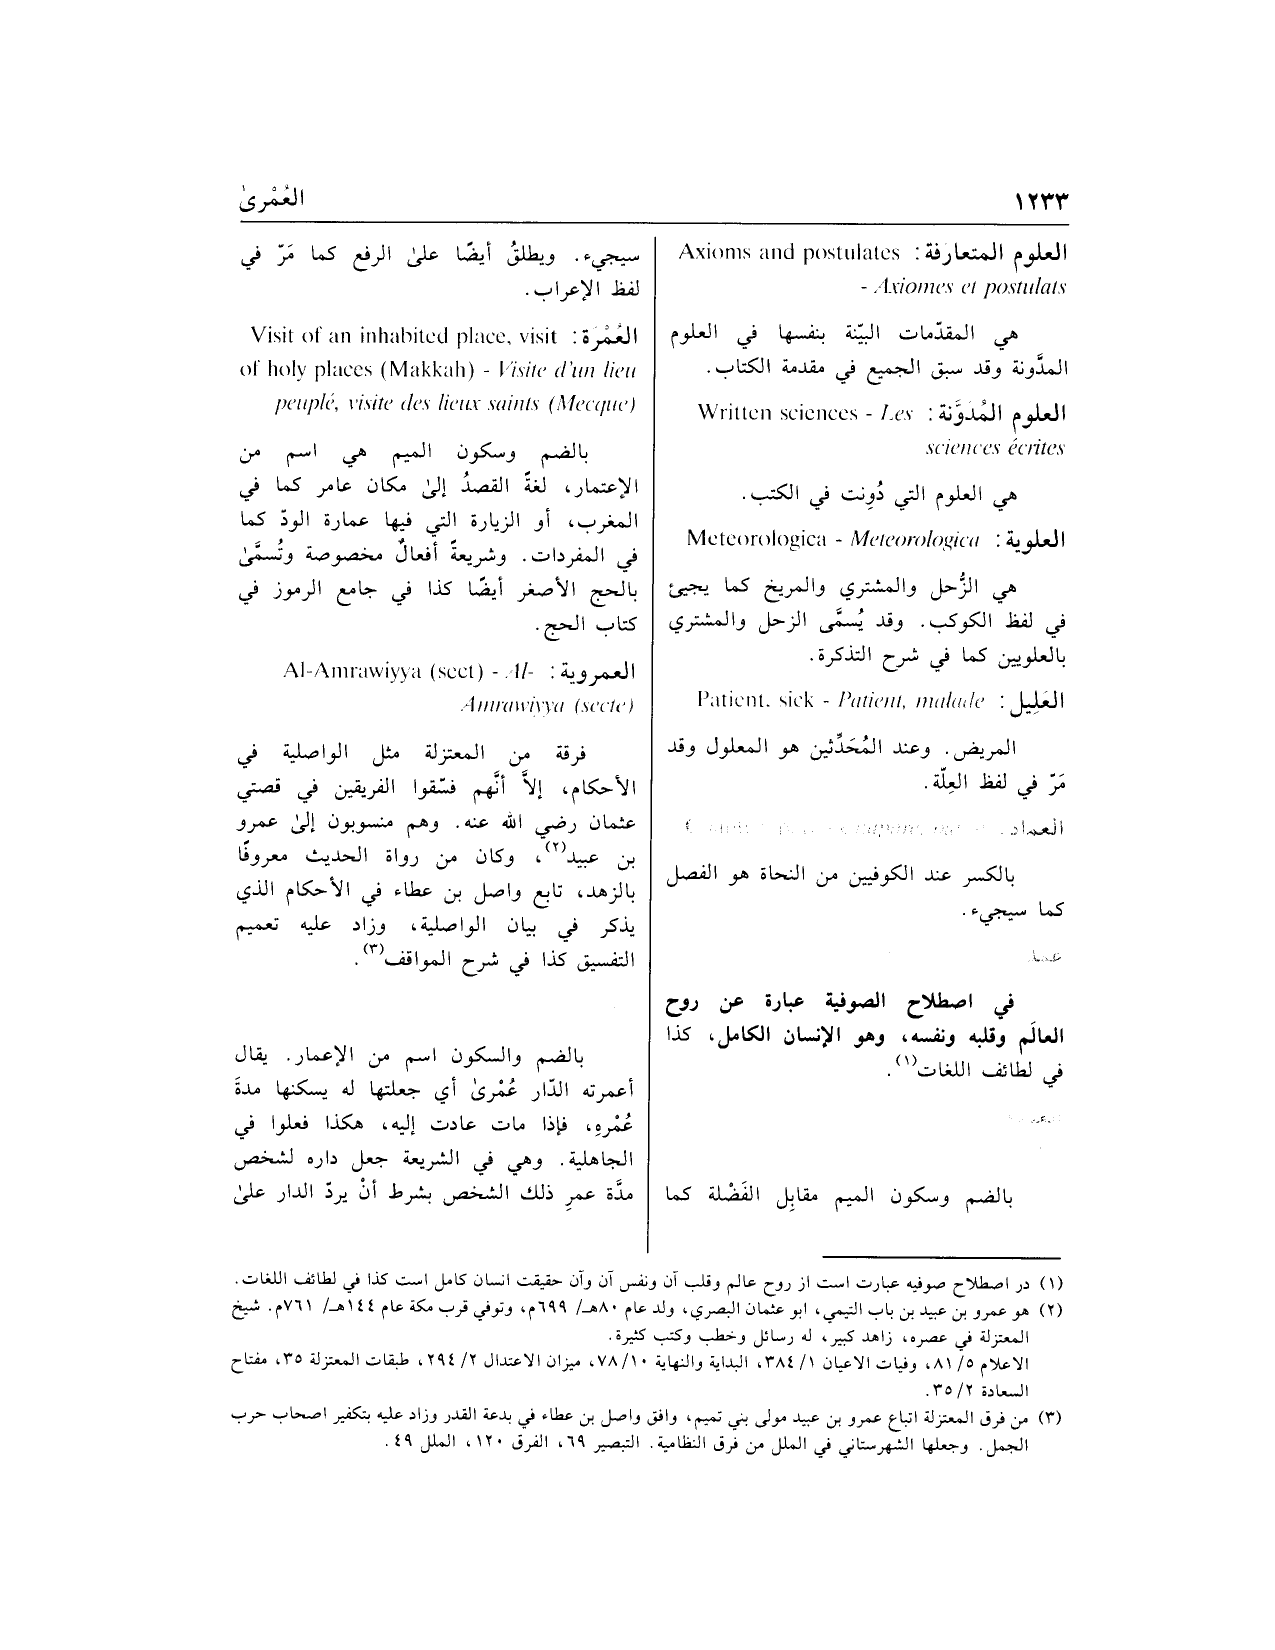 ١٢٣٣
العُمْرىٰ
العلوم المتعارفة: Axioms and postulates
- Axiomes et postulats
هي المقدّمات البيّنة بنفسها في العلوم
المدَّونة وقد سبق الجميع في مقدمة الكتاب.
العلوم المُدَوَّنة: Written sciences - Les
sciences écrites
هي العلوم التي دُونت في الكتب.
العلوية: Meteorologica - Meteorologica
هي الزُّحل والمشتري والمريخ كما يجيئ
في لفظ الكوكب. وقد يُسمَّى الزحل والمشتري
بالعلويين كما في شرح التذكرة.
العَلِيل: Patient, sick - Patient, malade
المريض. وعند المُحَدِّثين هو المعلول وقد
مَرّ في لفظ العِلّة.
العماد
بالكسر عند الكوفيين من النحاة هو الفصل
كما سيجيء.
في اصطلاح الصوفية عبارة عن روح
العالَم وقلبه ونفسه، وهو الإنسان الكامل، كذا
في لطائف اللغات(١).
بالضم وسكون الميم مقابِل الفَضْلة كما
سيجيء. ويطلقُ أيضًا علىٰ الرفع كما مَرّ في
لفظ الإعراب.
العُمْرَة: Visit of an inhabited place, visit
of holy places (Makkah) - Visite d'un lieu
peuplé, visite des lieux saints (Mecque)
بالضم وسكون الميم هي اسم من
الإعتمار، لغةً القصدُ إلىٰ مكان عامر كما في
المغرب، أو الزيارة التي فيها عمارة الودّ كما
في المفردات. وشريعةً أفعالٌ مخصوصة وتُسمَّىٰ
بالحج الأصغر أيضًا كذا في جامع الرموز في
كتاب الحج.
العمروية: Al-Amrawiyya (sect) - Al-
Amrawiyya (secte)
فرقة من المعتزلة مثل الواصلية في
الأحكام، إلاَّ أنَّهم فسّقوا الفريقين في قصتي
عثمان رضي الله عنه. وهم منسوبون إلىٰ عمرو
بن عبيد(٢)، وكان من رواة الحديث معروفًا
بالزهد، تابع واصل بن عطاء في الأحكام الذي
يذكر في بيان الواصلية، وزاد عليه تعميم
التفسيق كذا في شرح المواقف(٣).
بالضم والسكون اسم من الإعمار. يقال
أعمرته الدّار عُمْرىٰ أي جعلتها له يسكنها مدةَ
عُمْرِهِ، فإذا مات عادت إليه، هكذا فعلوا في
الجاهلية. وهي في الشريعة جعل داره لشخص
مدَّة عمرِ ذلك الشخص بشرط أنْ يردّ الدار علىٰ
(١) در اصطلاح صوفيه عبارت است از روح عالم وقلب آن ونفس آن وآن حقيقت انسان كامل است كذا في لطائف اللغات.
(٢) هو عمرو بن عبيد بن باب التيمي، ابو عثمان البصري، ولد عام ٨٠هـ/ ٦٩٩م، وتوفي قرب مكة عام ١٤٤هـ/ ٧٦١م. شيخ
المعتزلة في عصره، زاهد كبير، له رسائل وخطب وكتب كثيرة.
الاعلام ٥/ ٨١، وفيات الاعيان ١/ ٣٨٤، البداية والنهاية ١٠/ ٧٨، ميزان الاعتدال ٢/ ٢٩٤، طبقات المعتزلة ٣٥، مفتاح
السعادة ٢/ ٣٥.
(٣) من فرق المعتزلة اتباع عمرو بن عبيد مولى بني تميم، وافق واصل بن عطاء في بدعة القدر وزاد عليه بتكفير اصحاب حرب
الجمل. وجعلها الشهرستاني في الملل من فرق النظامية. التبصير ٦٩، الفرق ١٢٠، الملل ٤٩.